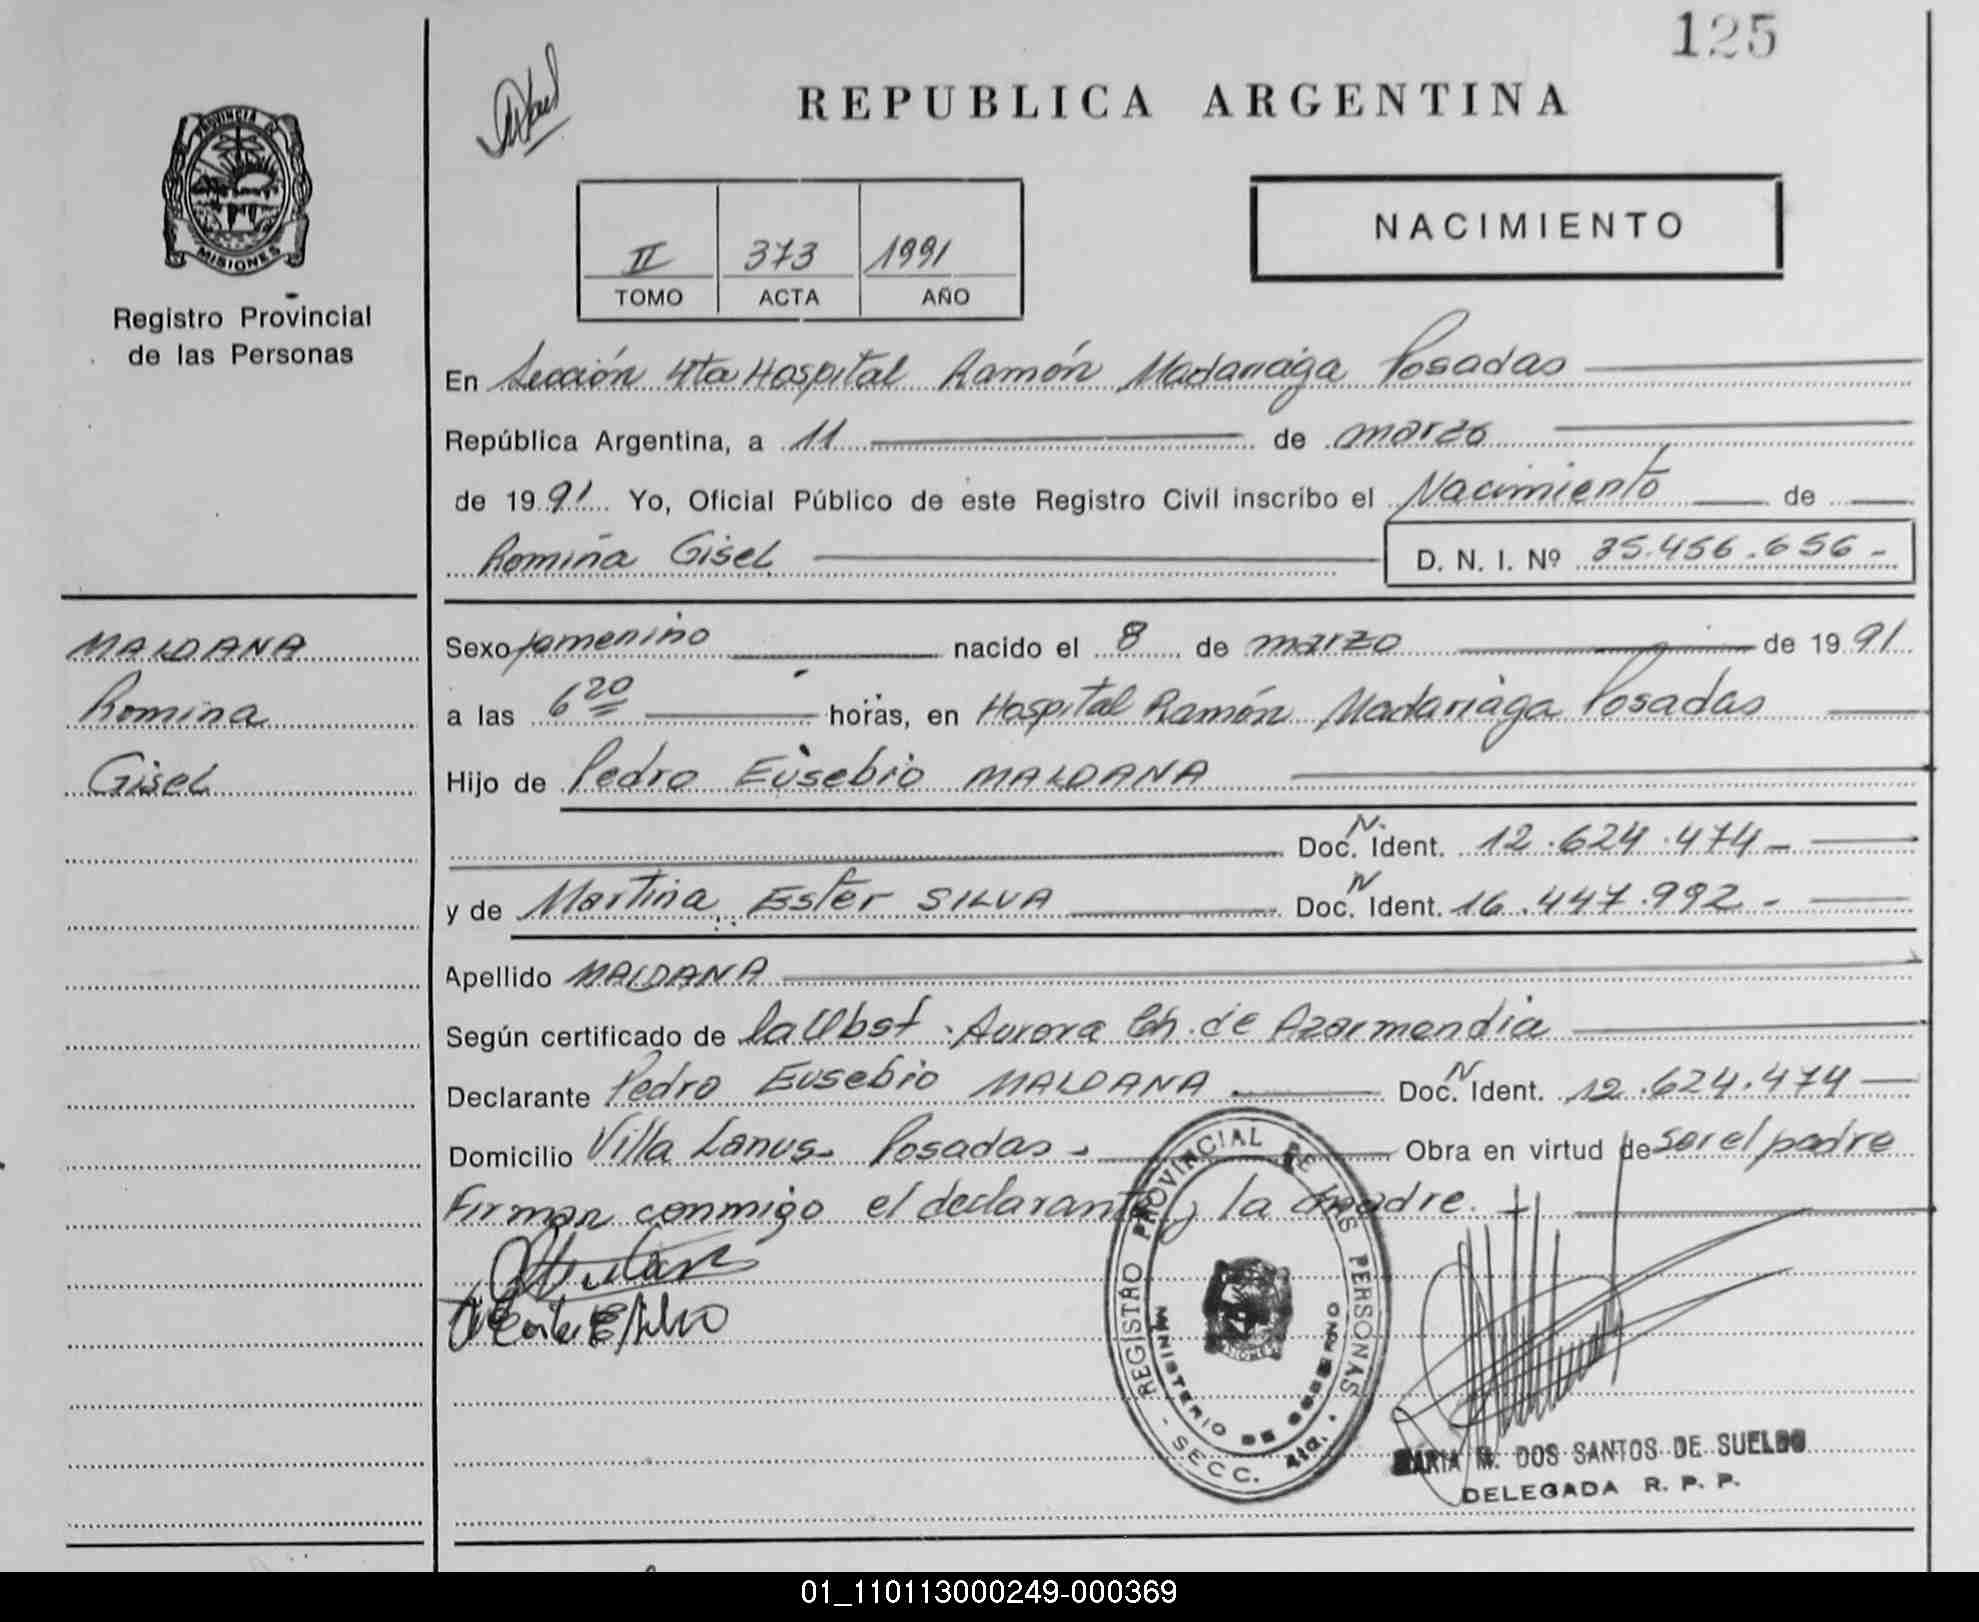 125
REPUBLICA ARGENTINA
PROVINCIA DE
MISIONES
Registro Provincial
de las Personas
II 373 1991
TOMO ACTA AÑO
NACIMIENTO
En Sección 4ta Hospital Ramón Madariaga Posadas
República Argentina, a 11 de marzo
de 1991 Yo, Oficial Público de este Registro Civil inscribo el Nacimiento de
Romina Gisel D. N. I. Nº 35.456.656.-
MALDANA
Romina
Gisel
Sexo femenino nacido el 8 de marzo de 1991
a las 6 20 horas, en Hospital Ramón Madariaga Posadas
Hijo de Pedro Eusebio MALDANA
Doc. N. Ident. 12.624.474-
y de Martina Ester SILVA Doc. N Ident. 16.447.992.-
Apellido MALDANA
Según certificado de la Obst. Aurora Ch. de Azarmendia
Declarante Pedro Eusebio MALDANA Doc. N Ident. 12.624.474
Domicilio Villa Lanus- Posadas- Obra en virtud de ser el padre
Firman conmigo el declarante y la madre.
REGISTRO PROVINCIAL DE LAS PERSONAS
MINISTERIO DE GOBIERNO
- SECC. 4ta. -
MARIA M. DOS SANTOS DE SUELDO
DELEGADA R. P. P.
01_110113000249-000369